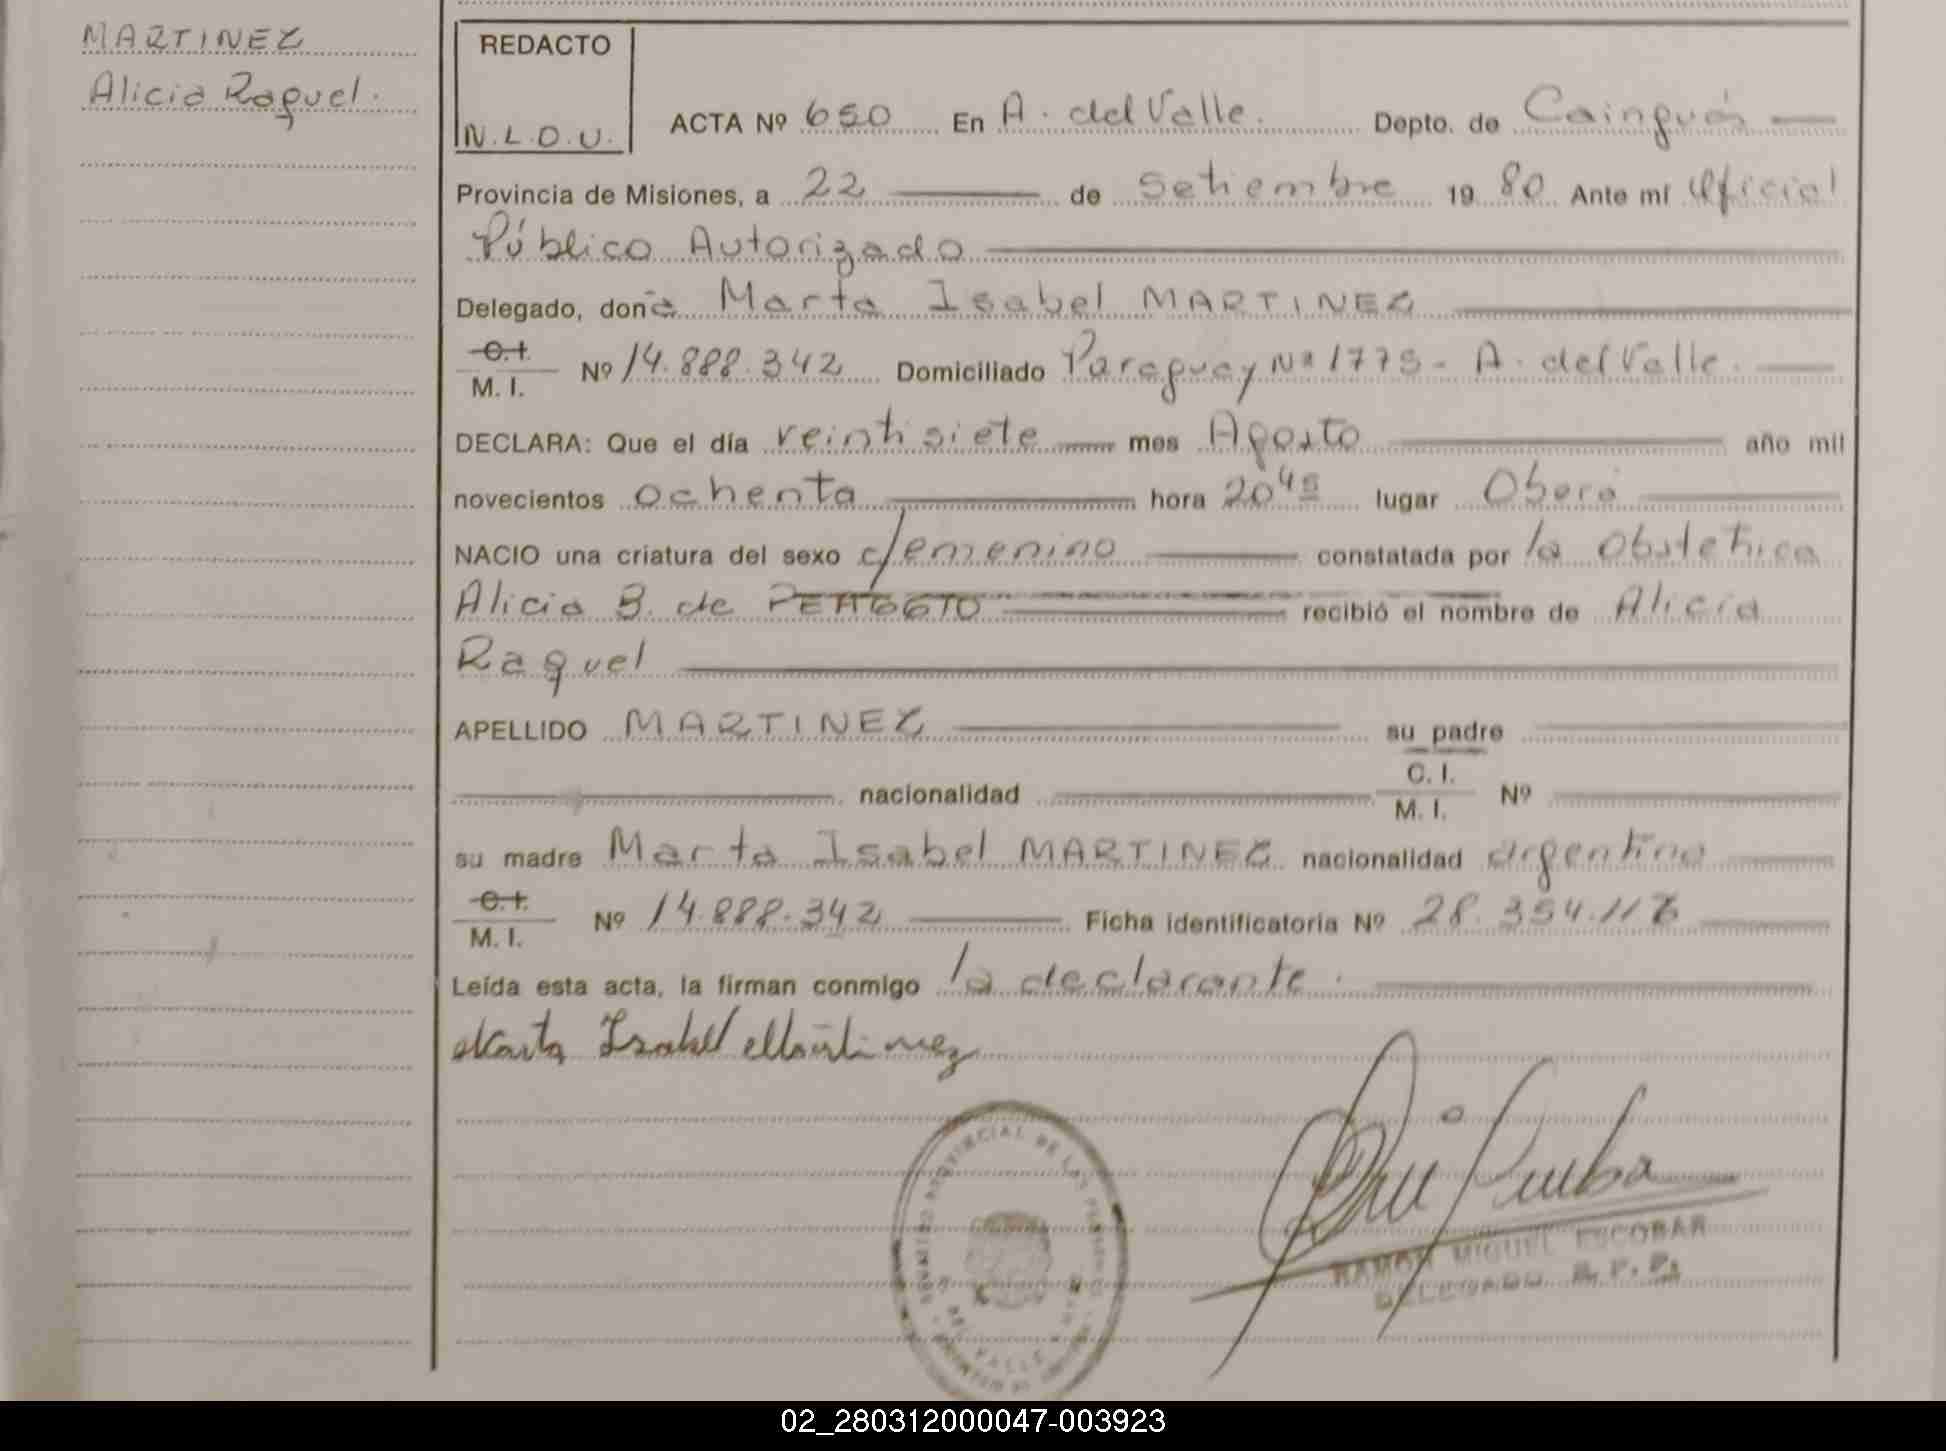 MARTINEZ
Alicia Raquel.
REDACTO
N.L.O.U.
ACTA Nº 650 En A. del Valle. Depto. de Cainguás
Provincia de Misiones, a 22 de Setiembre 1980 Ante mí Oficial
Público Autorizado
Delegado, doña Marta Isabel MARTINEZ
C.I.
M. I. Nº 14.888.342 Domiciliado Paraguay Nº 1775 - A. del Valle.
DECLARA: Que el día veintisiete mes Agosto año mil
novecientos ochenta hora 20 45 lugar Oberá
NACIO una criatura del sexo femenino constatada por la Obstetrica
Alicia B. de recibió el nombre de Alicia
Raquel
APELLIDO MARTINEZ su padre
nacionalidad C. I.
M. I. Nº
su madre Marta Isabel MARTINEZ nacionalidad argentina
C.I.
M. I. Nº 14.888.342 Ficha identificatoria Nº 28.354.116
Leída esta acta, la firman conmigo la declarante.
Marta Isabel Martinez
REGISTRO PROVINCIAL DE LAS PERSONAS
DEL VALLE
RAMON MIGUEL ESCOBAR
DELEGADO R. P. P.
02_280312000047-003923